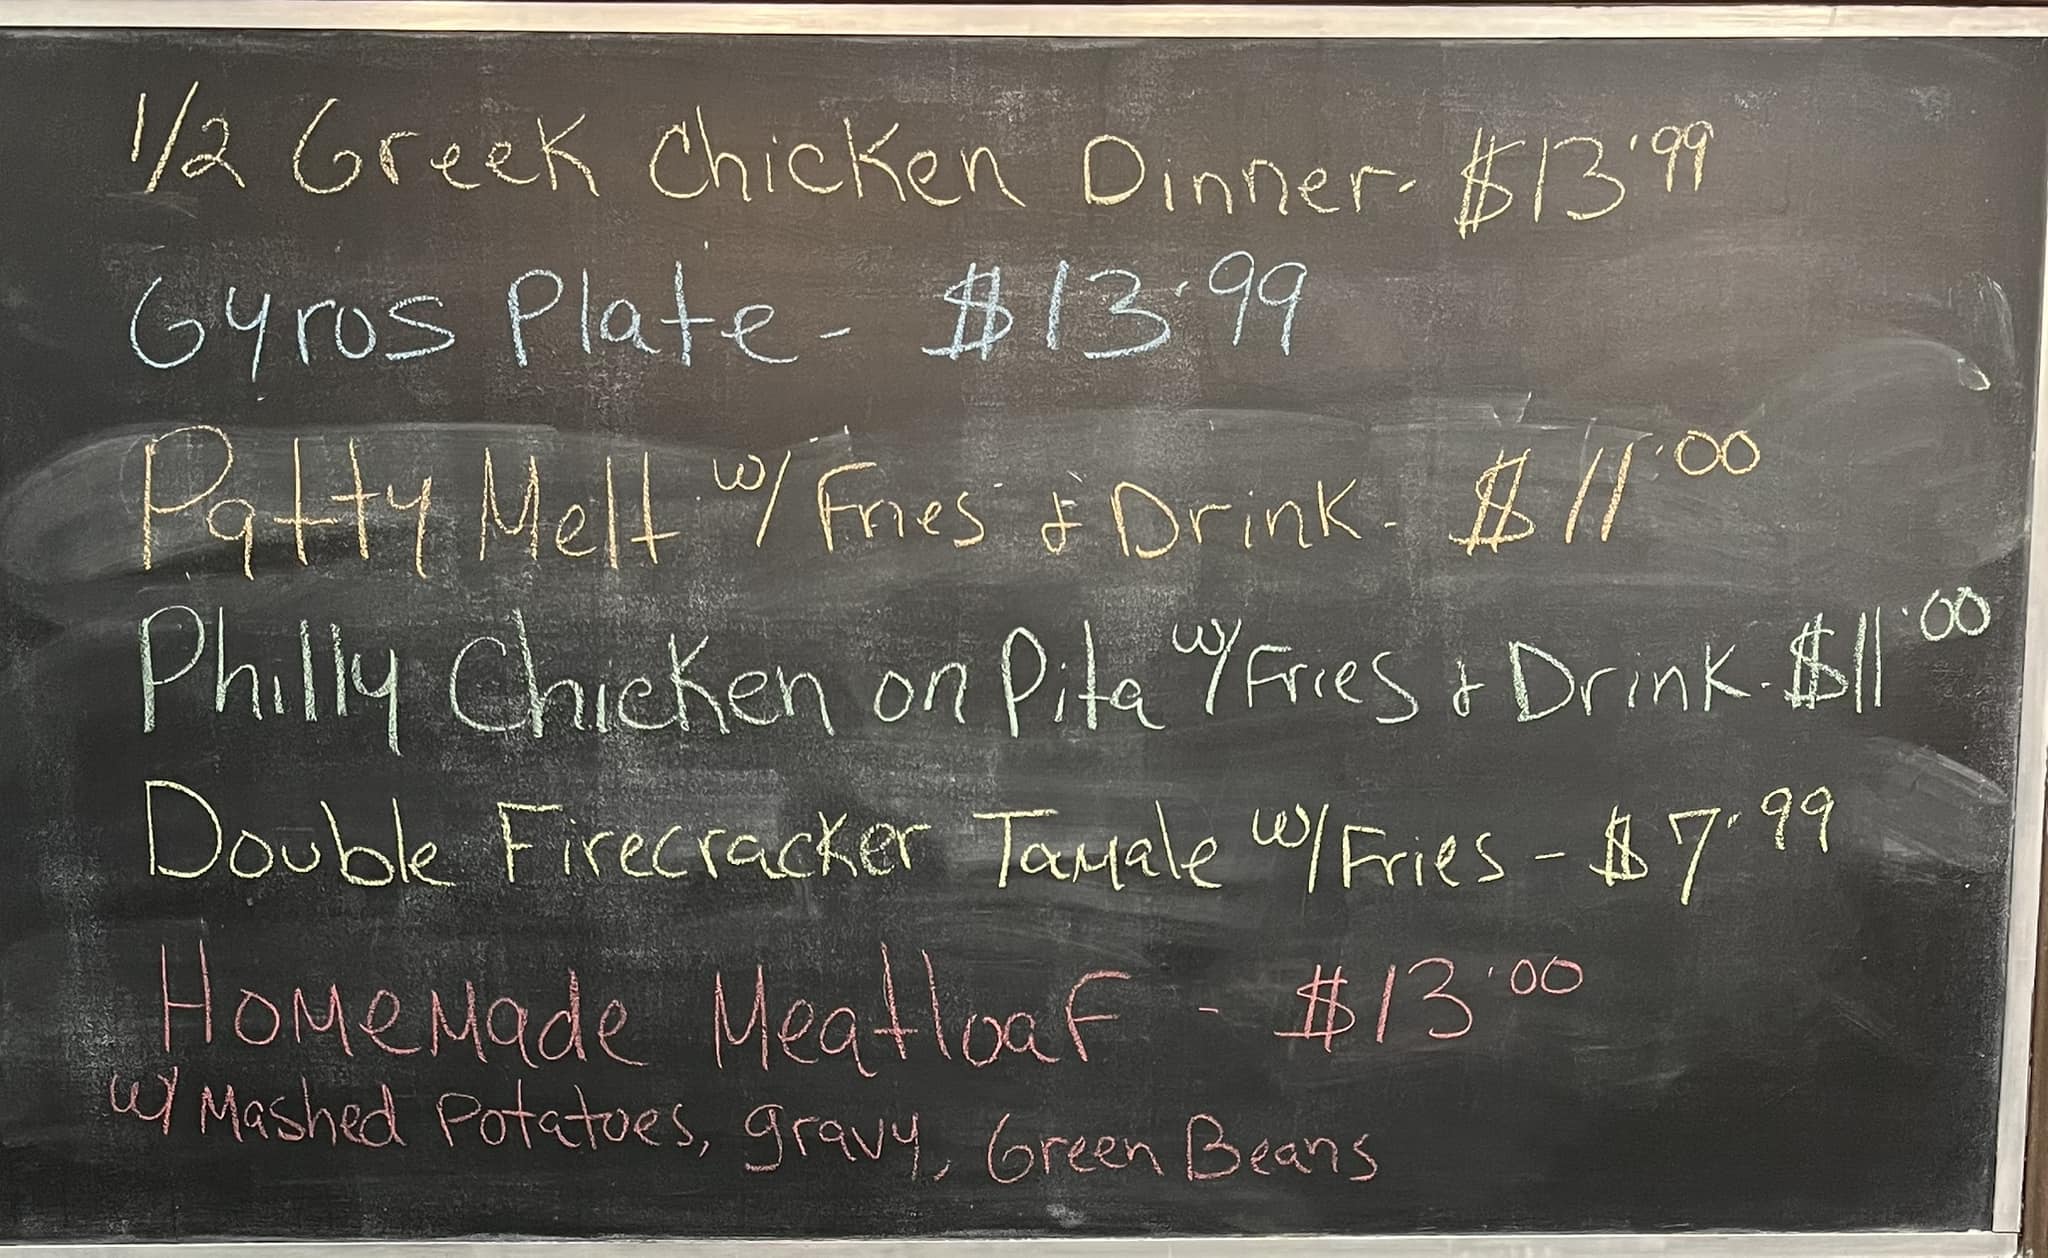 1/2 Greek Chicken Dinner- $13.99
Gyros Plate- $13.99
Patty Melt w/ Fries & Drink- $11.00
Philly Chicken on Pita w/ Fries & Drink- $11.00
Double Firecracker Tamale w/ Fries - $7.99
Homemade Meatloaf - $13.00
w/ Mashed Potatoes, gravy, Green Beans